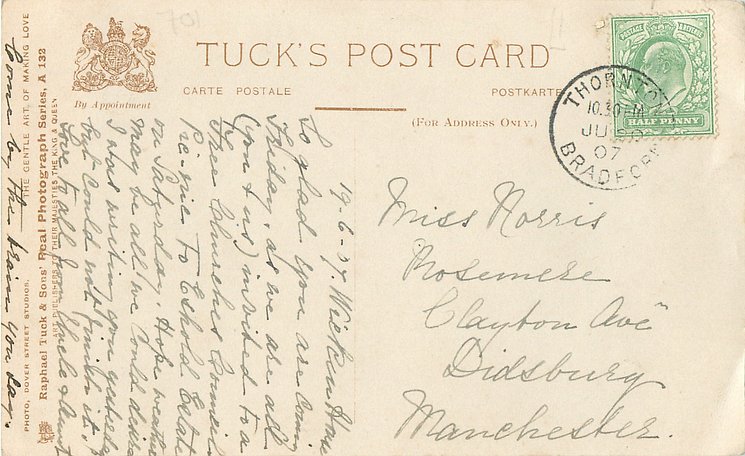 TUCK'S POST CARD
CARTE POSTALE
POSTKARTE
(FOR ADDRESS ONLY.)
By Appointment
701
POSTAGE
HALF PENNY
THORNTON
10.30
JU 20
07
BRADFORD
Miss Norris
Rosemere
Clayton Ave
Didsbury
Manchester.
19-6-07.
So glad you are coming
Friday, as we are all
(you & us) invited to a
Free Churches Council
Pic-nic to Eshold Estate
on Saturday. Hope weather
may be all we could desire
I was writing you yesterday
but could not finish it.
Love to all from Uncle & Aunt
Come by the train you say.
THE GENTLE ART OF MAKING LOVE
Raphael Tuck & Sons' Real Photograph Series, A 132
ART PUBLISHERS TO THEIR MAJESTIES THE KING & QUEEN
PHOTO, DOVER STREET STUDIOS.